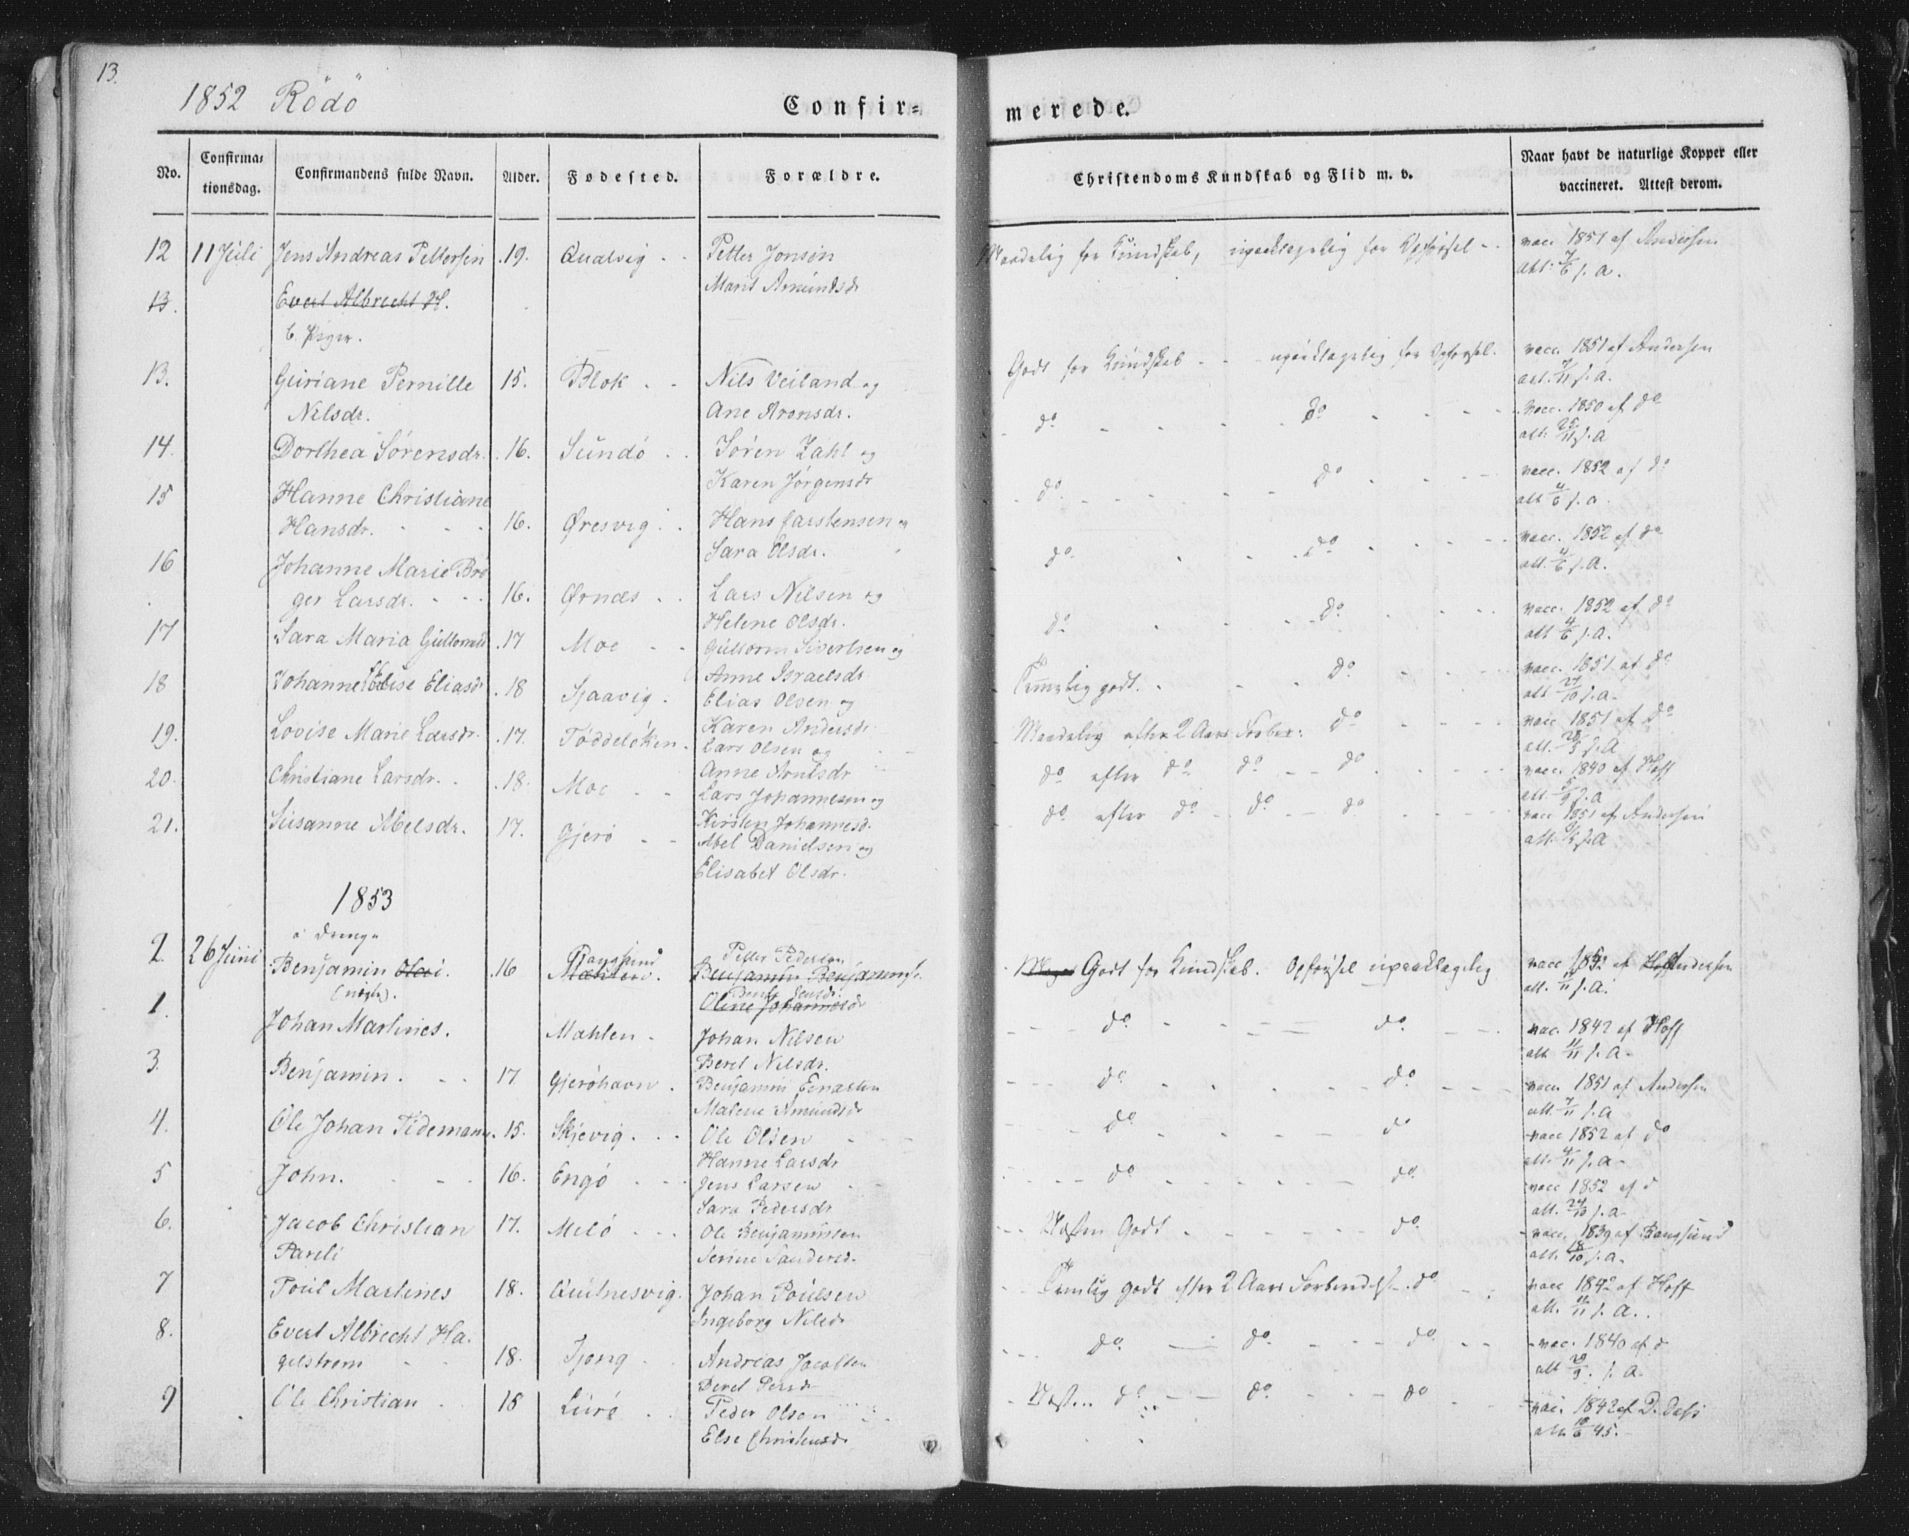 13.
1852 Rödö
Confir=
merede.
No.
Confirma=
tionsdag.
Confirmandens fulde Navn.
Alder.
Fødested.
Forældre.
Christendoms Kundskab og Flid m. v.
Naar havt de naturlige Kopper eller
vaccineret. Attest derom.
12 11 Juli Jens Andreas Pettersen .19. Qualvig Petter Jonsen Maadelig for Kundskab, upaaklagelig for Opførsel vacc 1851 af Andersen
Marit Amundsdr att. 7/6 s. A.
13. Evert Albrecht H.
6. Piger.
13. Guriane Pernille 15. Blok Nils Veiland og Godt for Kundskab upaaklagelig for Opførsel. vacc. 1851 af Andersen
Nilsdr. Ane Aronsdr. att. 7/11 s. A.
14. Dorthea Sørensdr. 16. Sundø Søren Zahl og do do vacc. 1850 af do
Karen Jørgensdr att 25/11 s. A
15 Hanne Christiane do do vacc. 1852 af do
Hansdr. 16. Øresvig Hans Carstensen og att 4/6 s. a.
Sara Olsdr.
16 Johanne Marie Brø do do vacc. 1852 af do
ger Larsdr. 16. Ørnæs Lars Nilsen og att. 4/6 s. A.
Helene Olsdr.
17 Sara Maria Guttormsdr .17 Moe Guttorm Sivertsen og do do vacc. 1852 af do
Anne Israelsdr att 4/6 s. A.
18 Johanne Elise Eliasdr .18 Sjaavig Elias Olsen og Temelig godt. do vacc. 1851 af do
Karen Andersdr att 27/10 s. A.
19. Lovise Marie Larsdr. .17. Toddeløken Lars Olsen og Maadelig efter 2 Aars Forber: do vacc 1851 af do
Anne Arntsdr att. s. A
20. Christiane Larsdr. .18. Moe Lars Johannesen og do efter do do do vacc. 1840 af Hoff
Kirsten Johannesd. att. s. A
21. Susanne Abelsdr. 17. Gjerø Abel Danielsen og do efter do do do vacc 1851 af Andersen
Elisabet Olsdr. att. s. A
1853
Drenge
2. 26 Juni Benjamin Olai. .16 Bangsund Mahlen. Petter Pedersen Benjamin Benjamins. Meget Godt for Kundskab. Opførsel upaaklagelig vacc 1852 af Hoff Andersen
Oline Johannesdr att. s. A.
1. Johan Martines. Mahlen Johan Nilsen do do vac. 1842 af Hoff
Beret Nilsdr. att. s. A.
3. Benjamin. 17. Gjerøhavn Benjamin Enersen do do vacc 1851 af Andersen
Malene Amundsdr att. 7/11 s. A
4. Ole Johan Tidemann. 15. Skjevig Ole Olsen do do vacc 1852 af do
Hanne Larsdr att. 4/11 s. A
5 John. 16. Engø Jens Larsen do do vacc 1852 af d
Sara Pedersdr att. 24/10 s. A
6. Jacob Christian 17. Melø Ole Benjaminsen Næsten Godt do vacc. 1839 af Bangsund
Pareli Serine Sandersd. att. 18/10 s. A.
7 Poul Martines 18. Quitnesvig. Johan Poulsen Temlig godt efter 2 Aars Forberedelse do vacc 1842 af Hoff
Ingeborg Nilsdr att. s. A.
8. Evert Albrecht Ha= do do do vac. 1840 af d
gelstrøm 18. Tjong Andreas Jacobsen att 20/9 s. A.
Beret Persdr
9 Ole Christian 18 Lurø Peder Olsen Næsten do do do vac. 1842 af D. Dass
Else Christensdr att. 10/6 45.